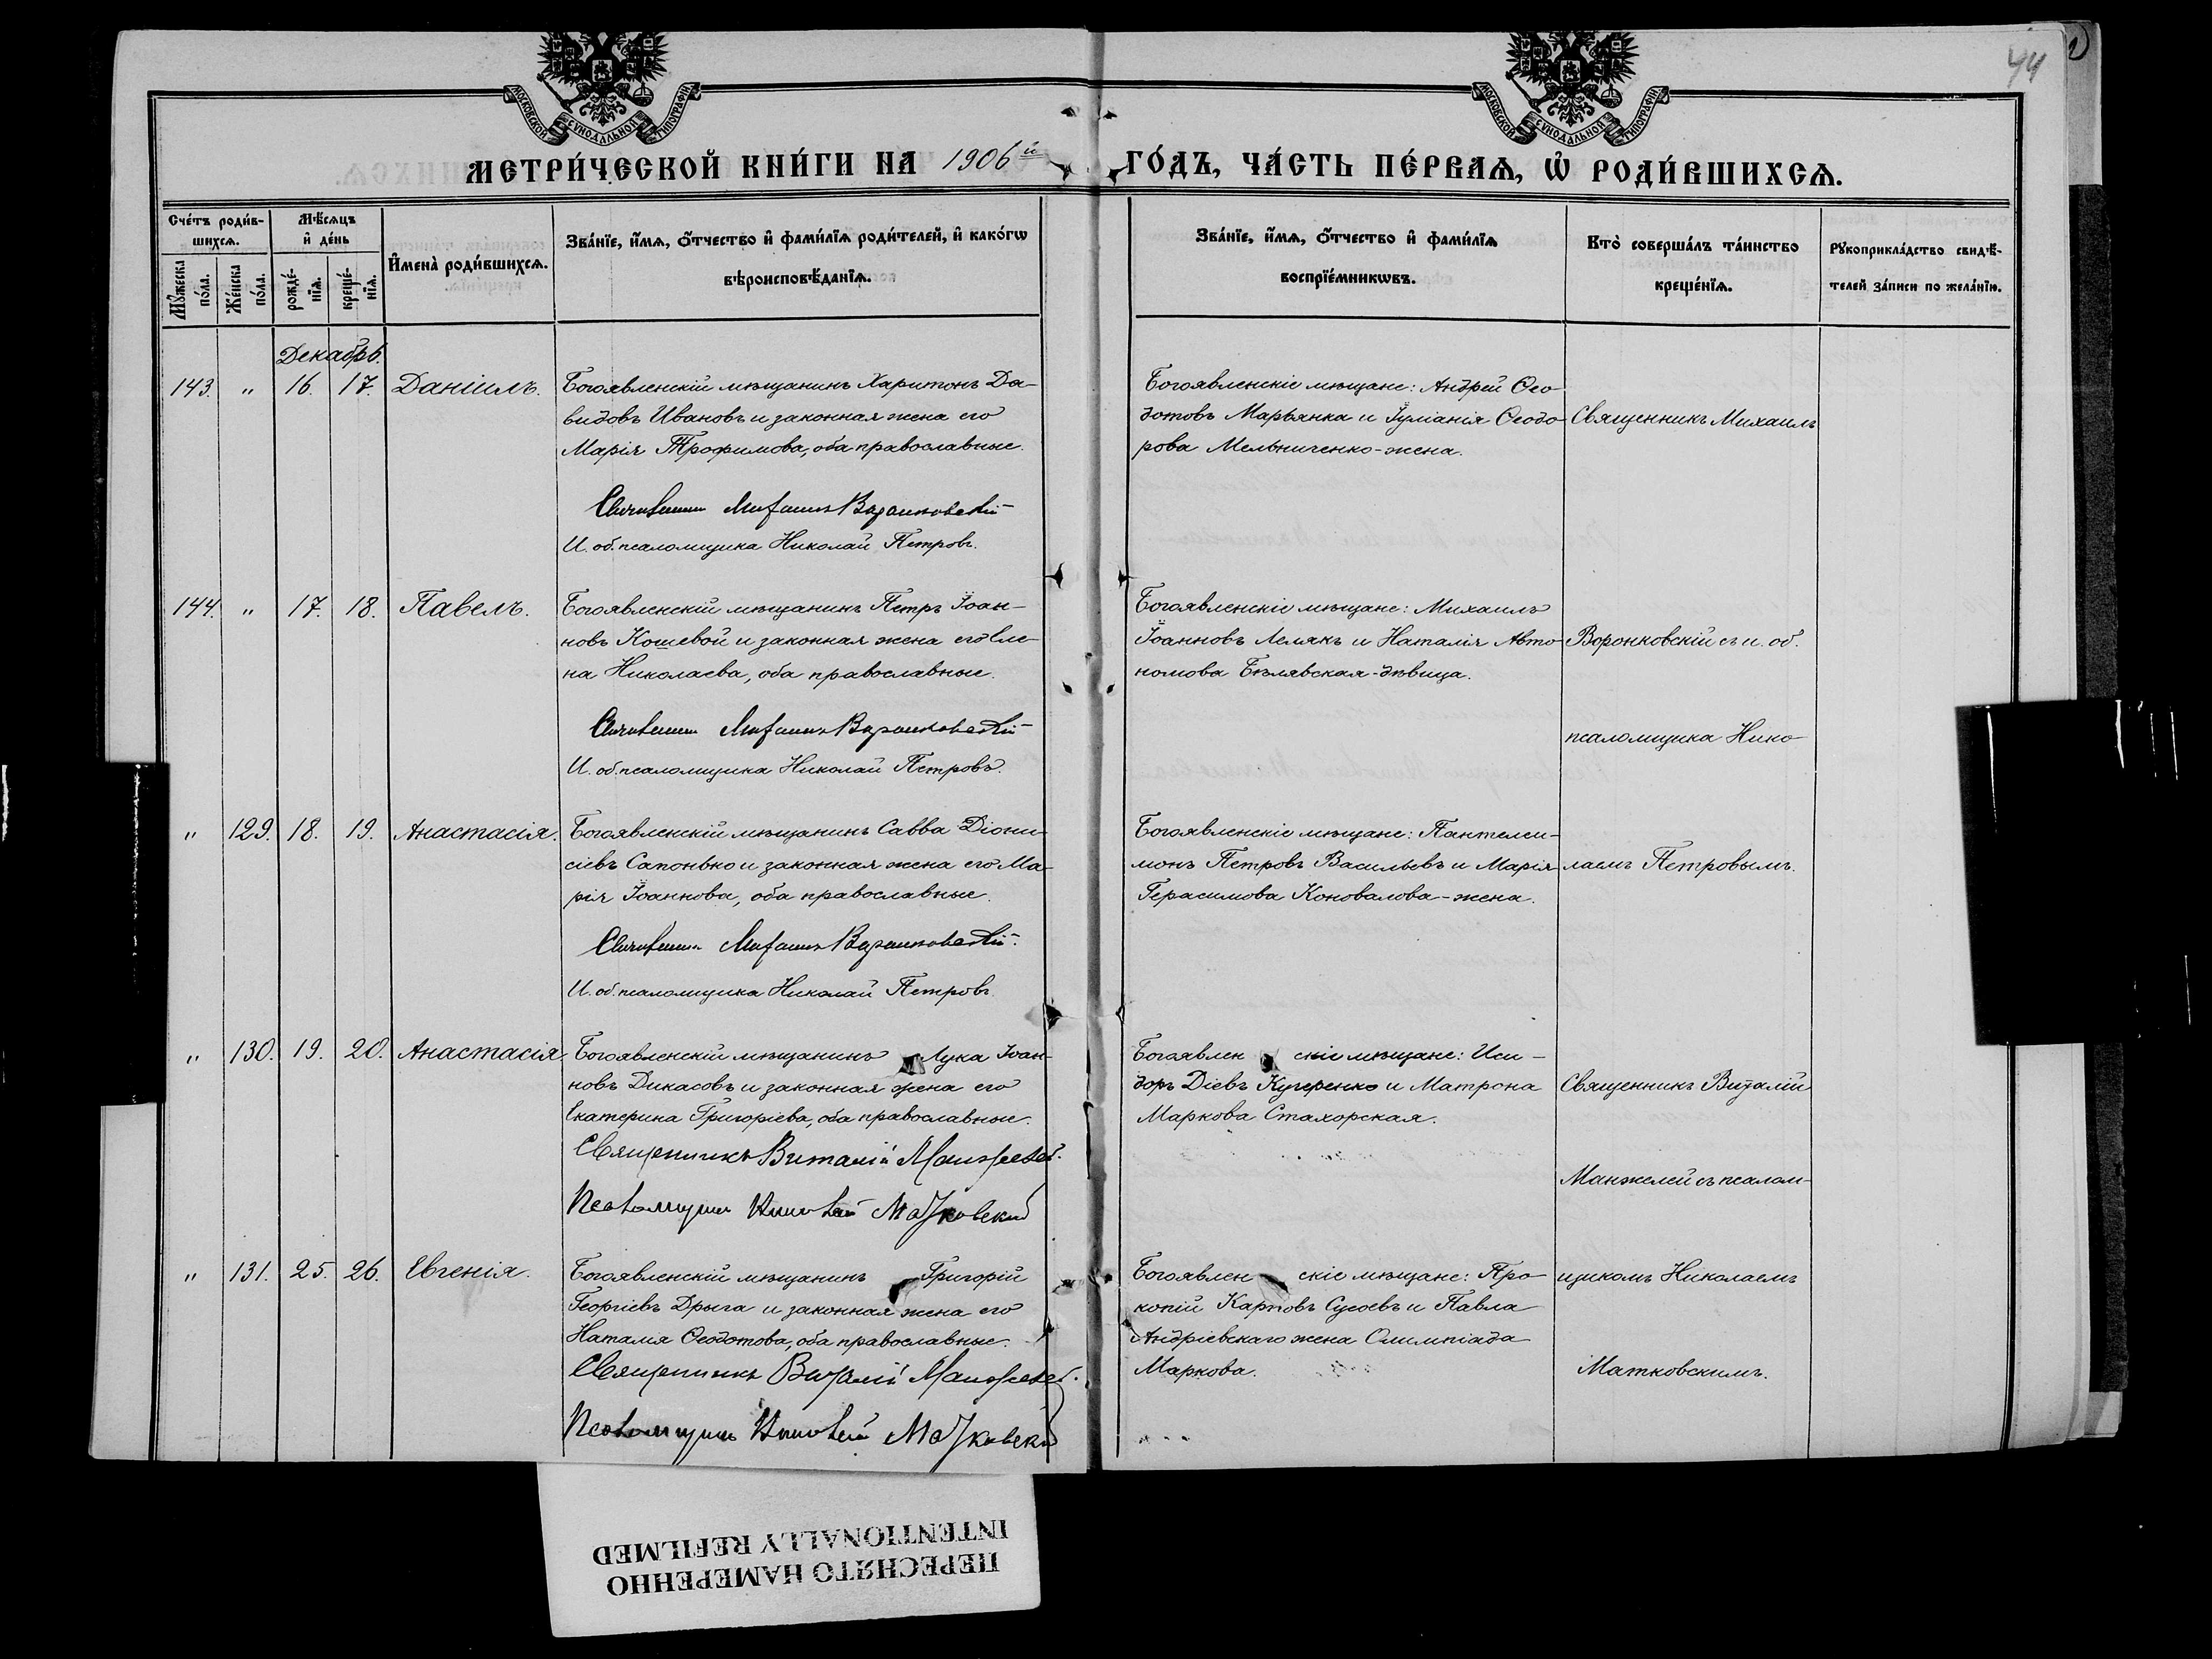 44
МОСКОВСКОЙ СѴНОДАЛЬНОЙ ТИПОГРАФІИ
МОСКОВСКОЙ СѴНОДАЛЬНОЙ ТИПОГРАФІИ
МЕТРИ́ЧЕСКОЙ КНИ́ГИ НА 1906й ГО́ДЪ, ЧА́СТЬ ПЕ́РВАѦ, Ѡ҆ РОДИ́ВШИХСѦ.
Сче́тъ роди́в-
шихсѧ.
Мꙋ́жеска по́ла.
Же́нска по́ла.
Мѣ́сѧцъ
и҆ де́нь
рожде́-
нїѧ.
креще́-
нїѧ.
И҆мена̀ роди́вшихсѧ.
Зва́нїе, и҆́мѧ, ѻ҆́тчество и҆ фами́лїѧ роди́телей, и҆ како́гѡ
вѣроисповѣ́данїѧ.
Зва́нїе, и҆́мѧ, ѻ҆́тчество и҆ фами́лїѧ
воспрїе́мникѡвъ.
Кто̀ соверша́лъ та́инство
креще́нїѧ.
Рꙋкоприкла́дство свидѣ́-
телей за́писи по жела́нїю.
Декабрь.
143. „ 16. 17. Даніилъ.
Богоявленскій мѣщанинъ Харитонъ Да-
видовъ Ивановъ и законная жена его
Марія Трофимова, оба православные.
Священникъ Михаилъ Воронковскій
И. об. псаломщика Николай Петровъ.
Богоявленскіе мѣщане: Андрей Ѳео-
дотовъ Марьянка и Іуліанія Ѳеодо-
рова Мельниченко-жена.
Священникъ Михаилъ
144. „ 17. 18. Павелъ.
Богоявленскій мѣщанинъ Петръ Іоан-
новъ Кошевой и законная жена его Еле-
на Николаева, оба православные.
Священникъ Михаилъ Воронковскій
И. об. псаломщика Николай Петровъ.
Богоявленскіе мѣщане: Михаилъ
Іоанновъ Лемякъ и Наталія Авто-
номова Бѣлявская-дѣвица.
Воронковскій съ и. об.
псаломщика Нико-
„ 129. 18. 19. Анастасія.
Богоявленскій мѣщанинъ Савва Діони-
сіевъ Сапонько и законная жена его Ма-
рія Іоаннова, оба православные.
Священникъ Михаилъ Воронковскій.
И. об. псаломщика Николай Петровъ.
Богоявленскіе мѣщане: Пантелеи-
монъ Петровъ Васильевъ и Марія
Герасимова Коновалова-жена.
лаемъ Петровымъ.
„ 130. 19. 20. Анастасія.
Богоявленскій мѣщанинъ Лука Іоан-
новъ Дикасовъ и законная жена его
Екатерина Григоріева, оба православные.
Священникъ Виталій Манжелей.
Псаломщикъ Николай Матковский
Богоявленскіе мѣщане: Иси-
доръ Діевъ Кучеренко и Матрона
Маркова Стахорская.
Священникъ Виталій
Манжелей съ псалом-
„ 131. 25. 26. Евгенія.
Богоявленскій мѣщанинъ Григорій
Георгіевъ Дрыга и законная жена его
Наталія Ѳеодотова, оба православные.
Священникъ Виталій Манжелей.
Псаломщикъ Николай Матковский
Богоявленскіе мѣщане: Про-
копій Карповъ Сусоевъ и Павла
Андріевскаго жена Олимпіада
Маркова.
щикомъ Николаемъ
Матковскимъ.
ПЕРЕСНЯТО НАМЕРЕННО
INTENTIONALLY REFILMED